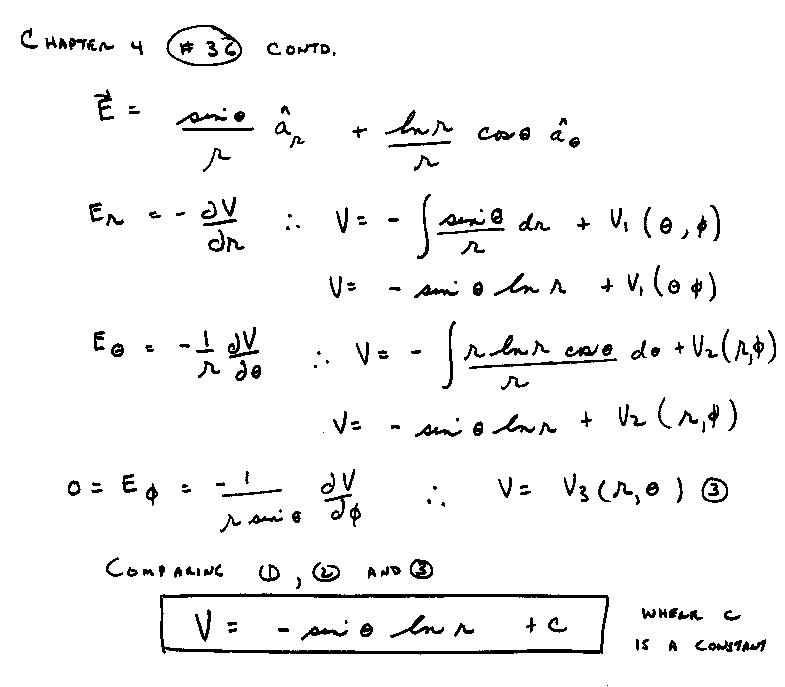 CHAPTER 4 #36 CONTD.
E⃗ = sinθ/r â_r + ln r/r cosθ â_θ
E_r = - ∂V/∂r ∴ V = - ∫ sinθ/r dr + V₁(θ,φ)
V = - sin θ ln r + V₁(θ φ)
E_θ = - 1/r ∂V/∂θ ∴ V = - ∫ r ln r cosθ/r dθ + V₂(r,φ)
V = - sin θ ln r + V₂(r,φ)
0 = E_φ = -1/(r sin θ) ∂V/∂φ ∴ V = V₃(r,θ) ③
COMPARING ①, ② AND ③
V = - sin θ ln r + C WHERE C
IS A CONSTANT